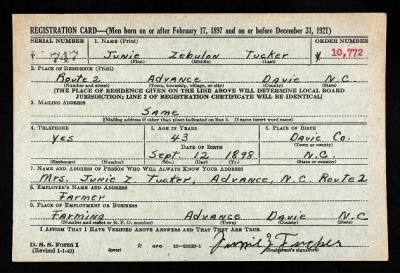 REGISTRATION CARD—(Men born on or after February 17, 1897 and on or before December 31, 1921)
SERIAL NUMBER 1. NAME (Print) ORDER NUMBER
747 Junie Zebulon Tucker 10,772
(First) (Middle) (Last)
2. PLACE OF RESIDENCE (Print)
Route 2 Advance Davie N.C.
(Number and street) (Town, township, village, or city) (County) (State)
[THE PLACE OF RESIDENCE GIVEN ON THE LINE ABOVE WILL DETERMINE LOCAL BOARD
JURISDICTION; LINE 2 OF REGISTRATION CERTIFICATE WILL BE IDENTICAL]
3. MAILING ADDRESS
Same
[Mailing address if other than place indicated on line 2. If same insert word same]
4. TELEPHONE 5. AGE IN YEARS 6. PLACE OF BIRTH
yes 43 Davie Co.
DATE OF BIRTH (Town or county)
Sept. 12 1898 N.C.
(Exchange) (Number) (Mo.) (Day) (Yr.) (State or country)
7. NAME AND ADDRESS OF PERSON WHO WILL ALWAYS KNOW YOUR ADDRESS
Mrs. Junie Z. Tucker, Advance, N.C. Route 2
8. EMPLOYER'S NAME AND ADDRESS
Farmer
9. PLACE OF EMPLOYMENT OR BUSINESS
Farming Advance Davie N.C.
(Number and street or R. F. D. number) (Town) (County) (State)
I AFFIRM THAT I HAVE VERIFIED ABOVE ANSWERS AND THAT THEY ARE TRUE.
D. S. S. Form 1
(Revised 1-1-42) (over) GPO
(Registrant's signature)